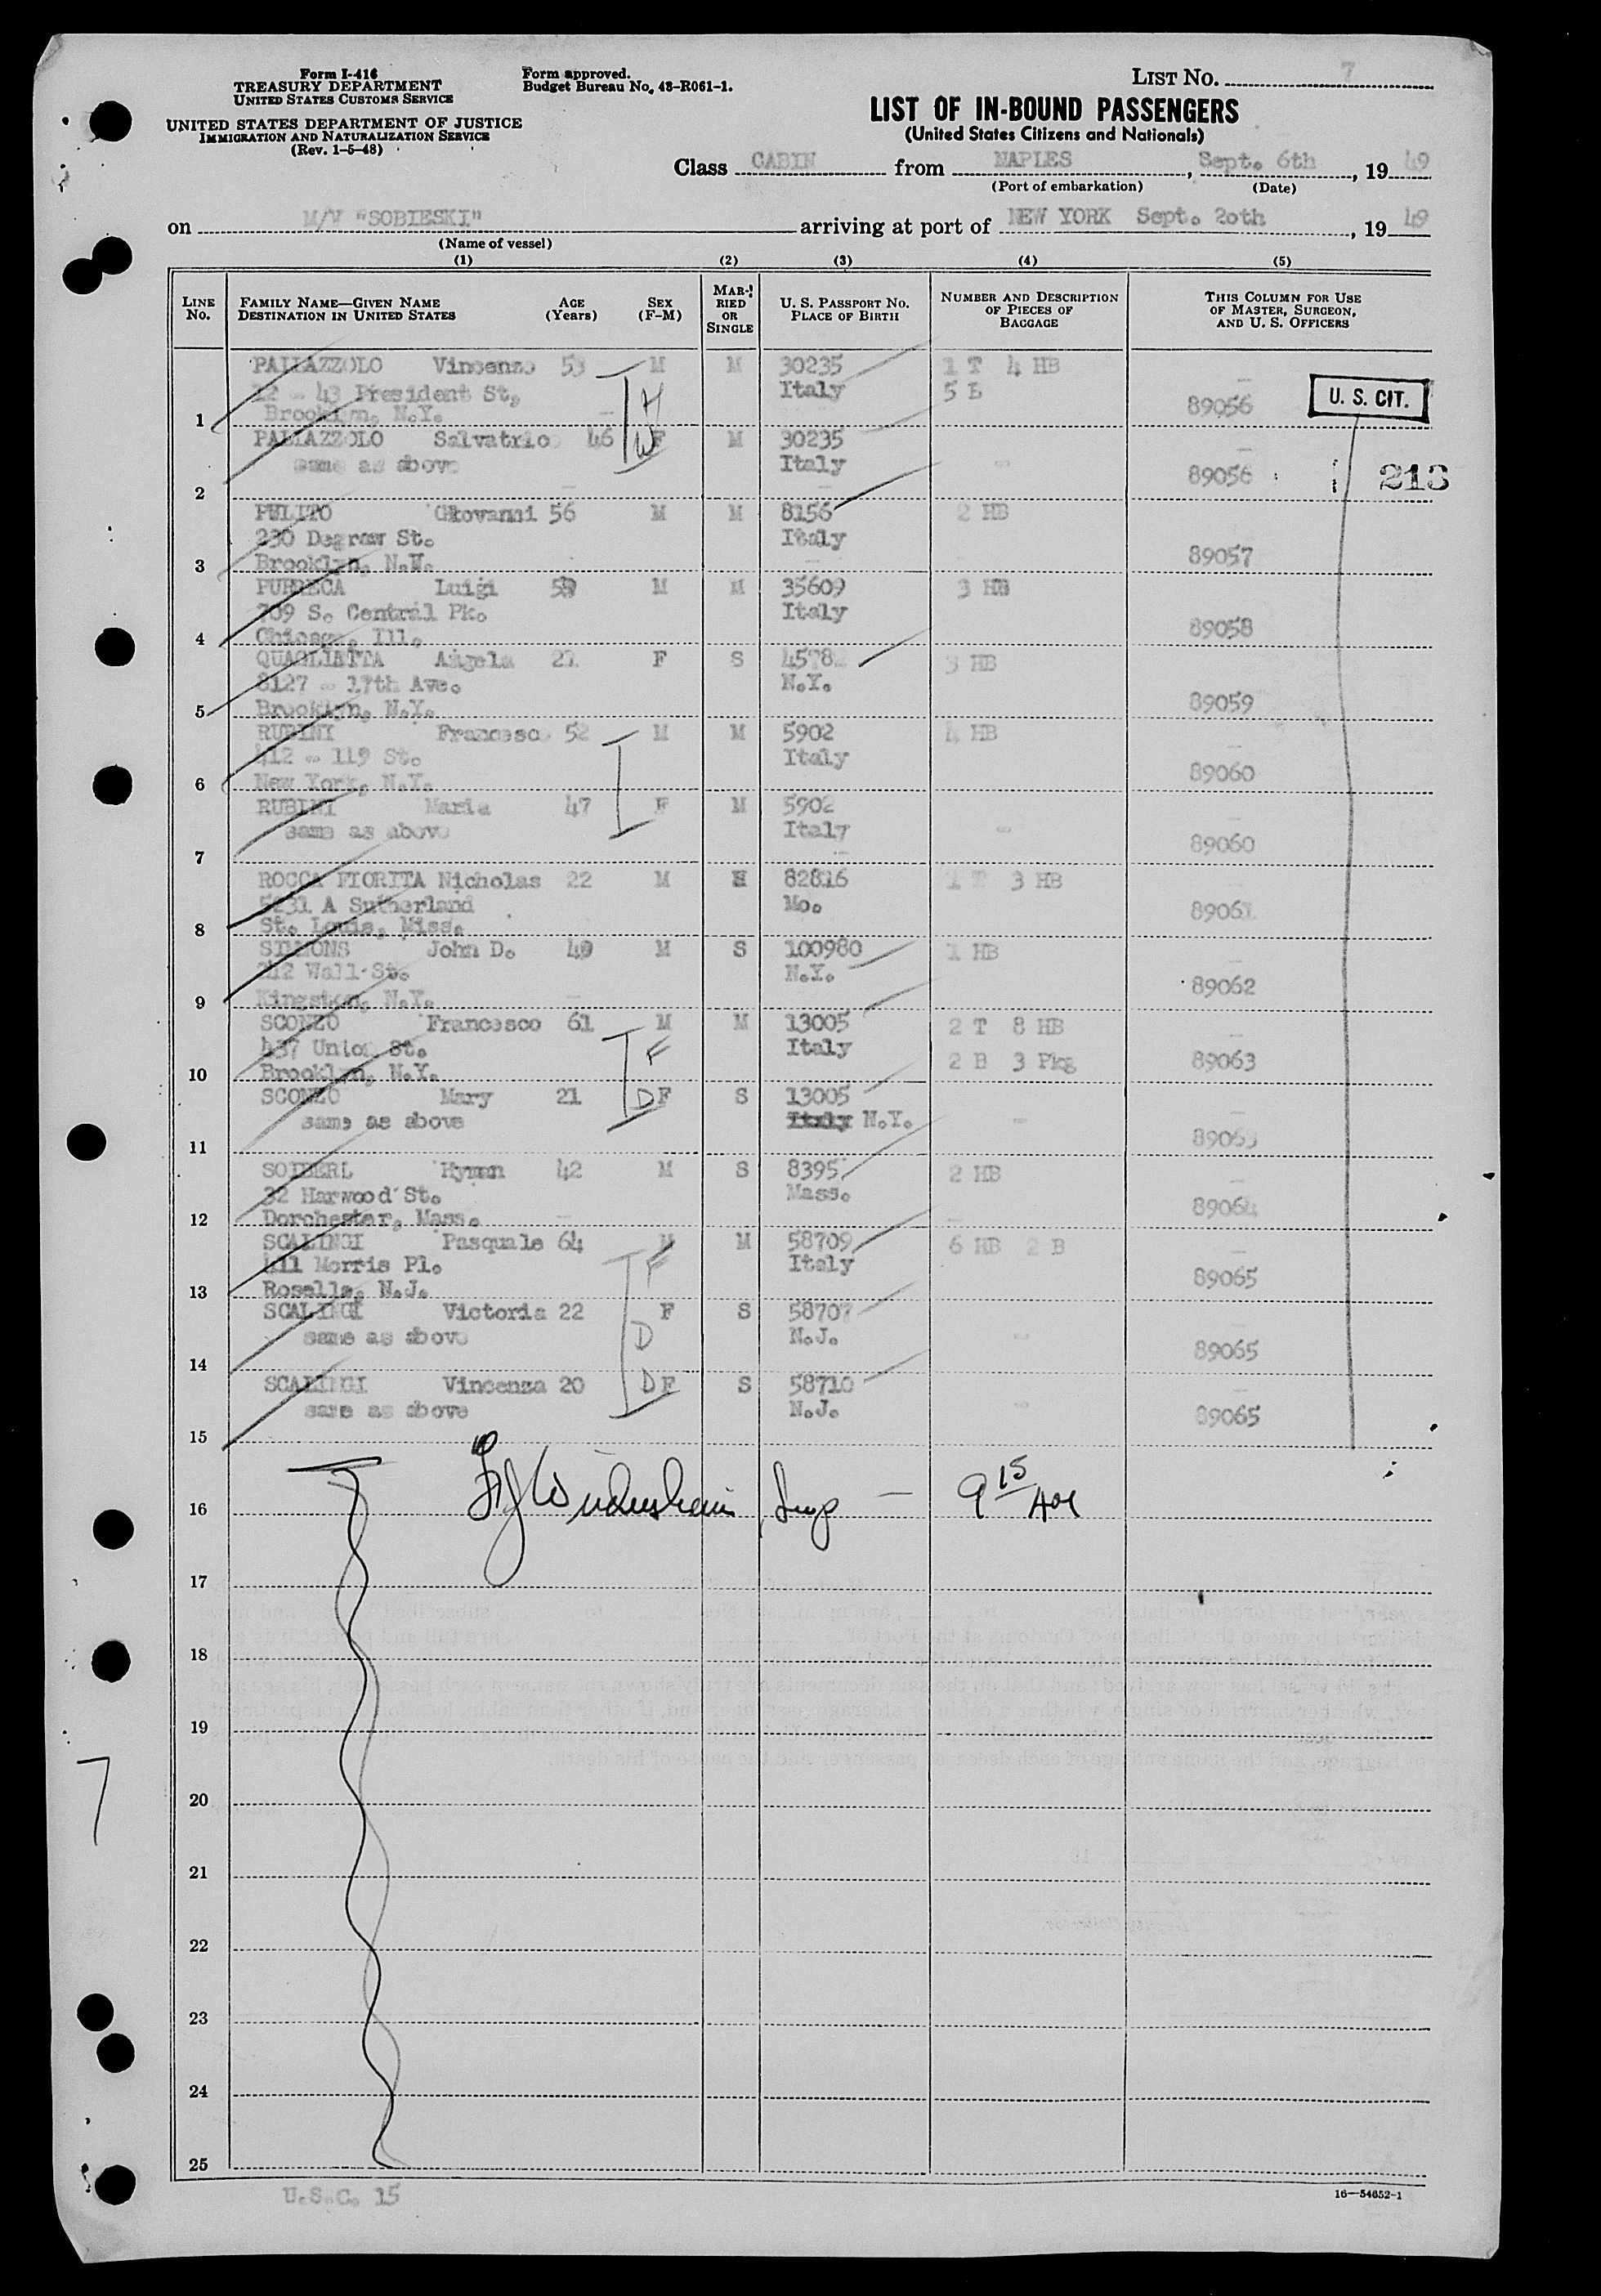 Form I-416
TREASURY DEPARTMENT
UNITED STATES CUSTOMS SERVICE
UNITED STATES DEPARTMENT OF JUSTICE
IMMIGRATION AND NATURALIZATION SERVICE
(Rev. 1-5-48)
Form approved.
Budget Bureau No. 43-R061-1.
LIST NO. 7
LIST OF IN-BOUND PASSENGERS
(United States Citizens and Nationals)
Class CABIN from NAPLES, Sept. 6th, 19 49
(Port of embarkation) (Date)
on M/V "SOBIESKI" arriving at port of NEW YORK Sept. 20th, 19 49
(Name of vessel)
(1) (2) (3) (4) (5)
LINE NO. FAMILY NAME—GIVEN NAME DESTINATION IN UNITED STATES AGE (Years) SEX (F-M) MARRIED OR SINGLE U. S. PASSPORT NO. PLACE OF BIRTH NUMBER AND DESCRIPTION OF PIECES OF BAGGAGE THIS COLUMN FOR USE OF MASTER, SURGEON, AND U. S. OFFICERS
PALLAZZOLO Vincenzo 53 M M 30235 1 T 4 HB
12 - 43 President St, H Italy 5 B
1 Brooklyn, N.Y. 89056 U. S. CIT.
PALLAZZOLO Salvatrice 46 W F M 30235
same as above Italy -
2 89056 213
PULITO Giovanni 56 M M 8156 2 HB
230 Degraw St. Italy
3 Brooklyn, N.Y. 89057
Luigi 59 M M 35609 3 HB
709 S. Central Pk. Italy
4 Chicago, Ill, 89058
QUAGLIETTA Angela 21 F S 3 HB
8127 - 17th Ave. N.Y.
5 Brooklyn, N.Y. 89059
RUBINI Francesco 52 M M 5902 4 HB
412 - 119 St. Italy
6 New York, N.Y. 89060
RUBINI Maria 47 F M 5902
same as above Italy -
7 89060
ROCCA FIORITA Nicholas 22 M 82816 1 T 3 HB
5231 A Sutherland Mo.
8 St. Louis, Miss. 89061
SIMMONS John D. 49 M S 100980 1 HB
212 Wall St. N.Y.
9 Kingston, N.Y. 89062
SCONZO Francesco 61 M M 13005 2 T 8 HB
437 Union St. F Italy 2 B 3 Pkg
10 Brooklyn, N.Y. 89063
SCONZO Mary 21 D F S 13005
same as above Italy N.Y. -
11 89063
SOIBERL Hyman 42 M S 8395 2 HB
32 Harwood St. Mass.
12 Dorchester, Mass. 89064
SCALINGI Pasquale 64 M M 58709 6 HB 2 B
411 Morris Pl. F Italy
13 Roselle, N.J. 89065
SCALINGI Victoria 22 F S 58707
same as above D N.J. -
14 89065
SCALINGI Vincenza 20 D F S 58710
same as above N.J. -
15 89065
16 Insp — 9 15 AM
17
18
19
20
21
22
23
24
25
7
U.S.C. 15
16—54652-1